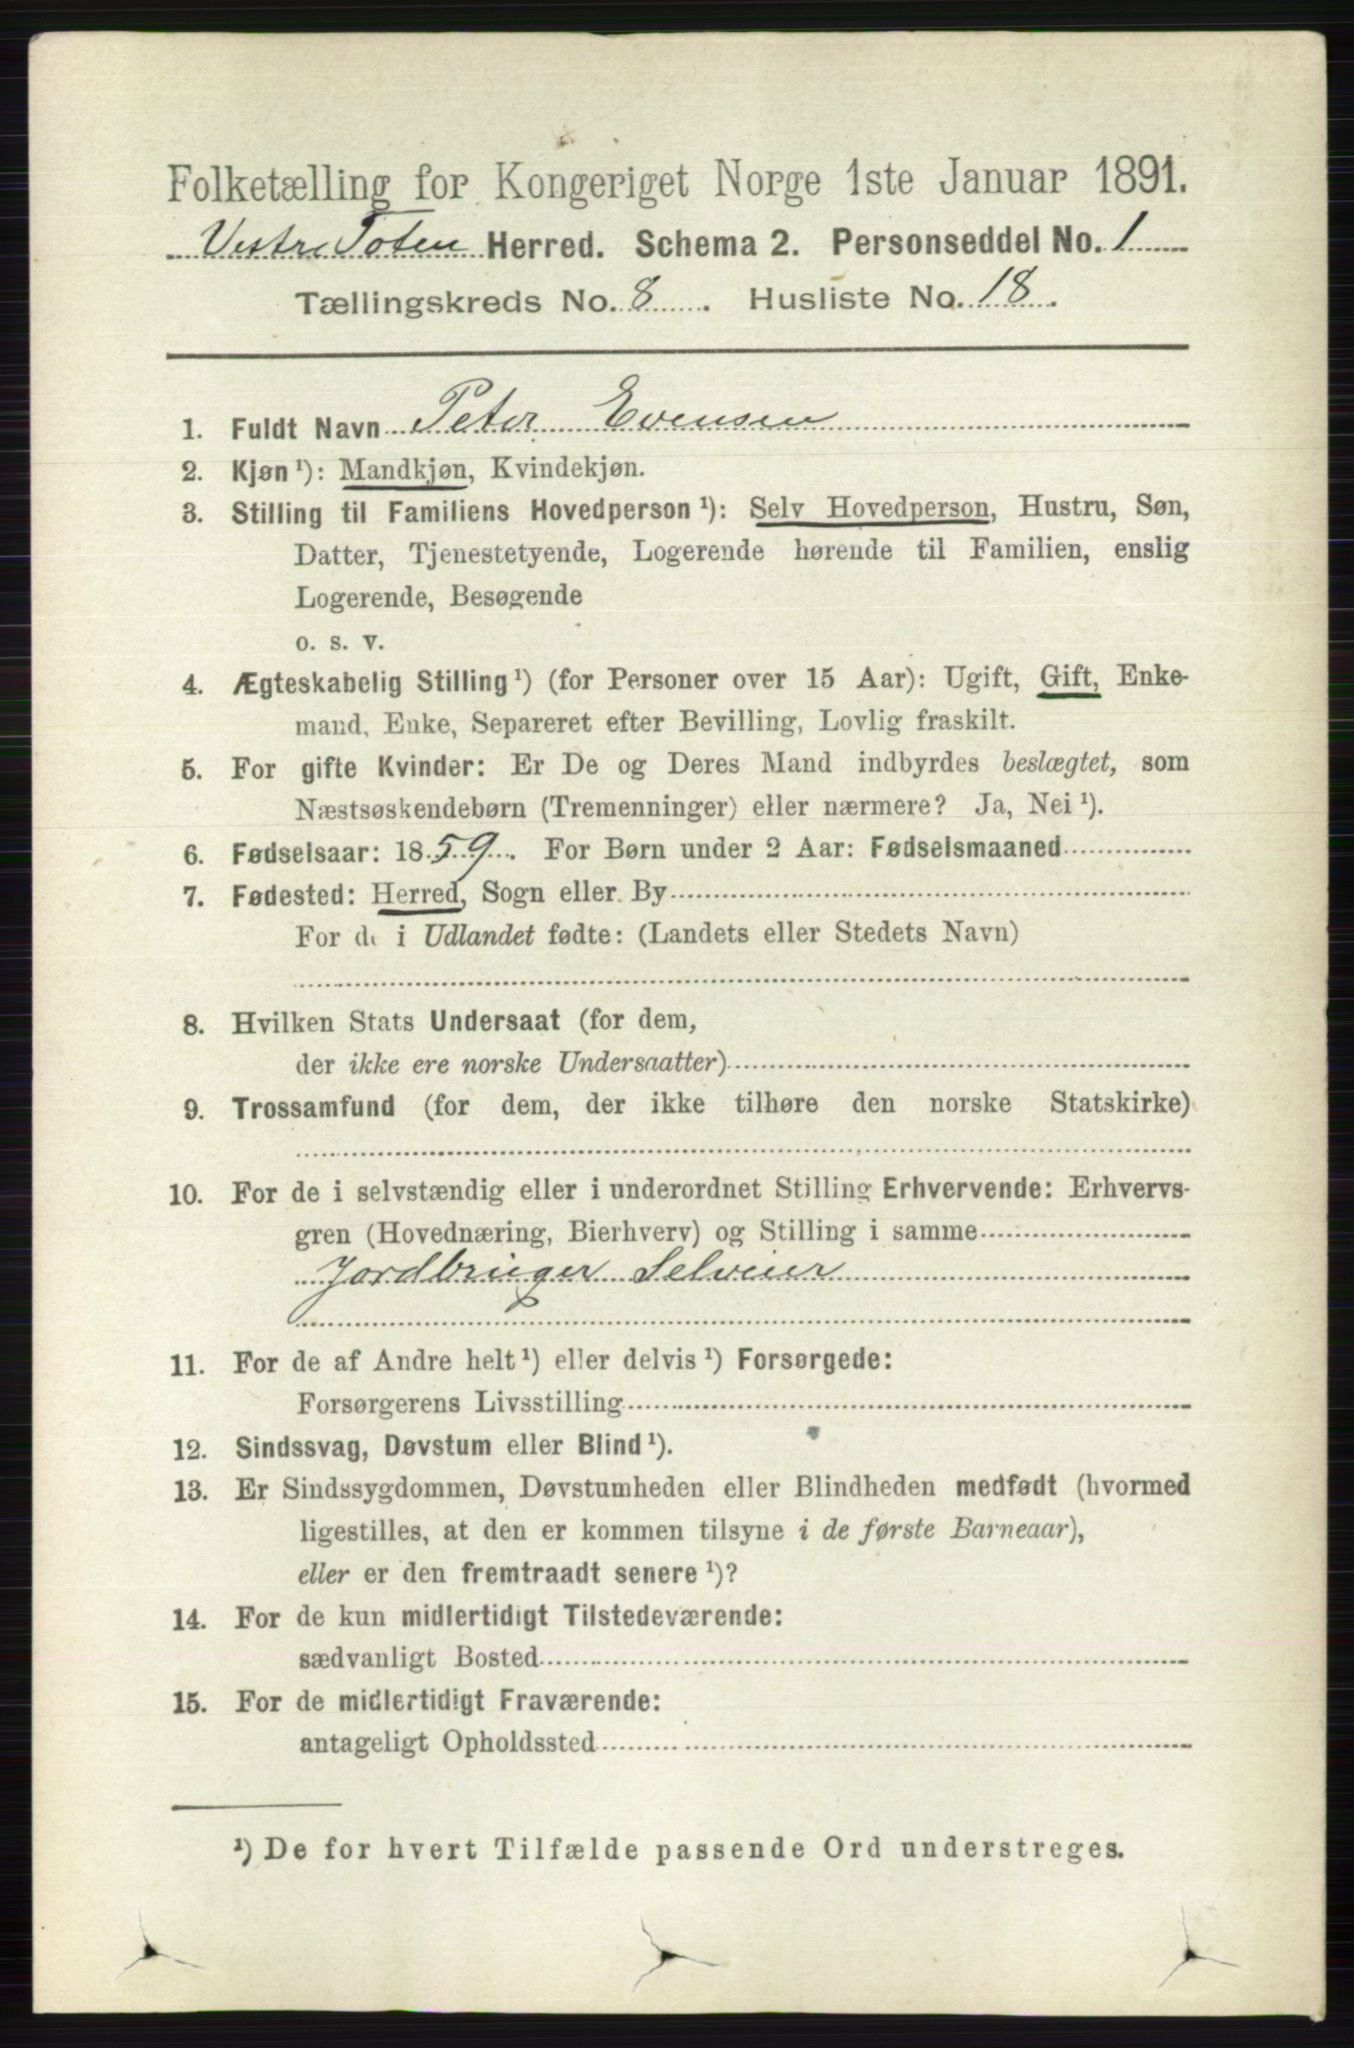 Folketælling for Kongeriget Norge 1ste Januar 1891.
Vestre Toten Herred. Schema 2. Personseddel No. 1
Tællingskreds No. 8. Husliste No. 18.
1. Fuldt Navn Peter Evensen
2. Kjøn ¹): Mandkjøn, Kvindekjøn.
3. Stilling til Familiens Hovedperson ¹): Selv Hovedperson, Hustru, Søn,
Datter, Tjenestetyende, Logerende hørende til Familien, enslig
Logerende, Besøgende
o. s. v.
4. Ægteskabelig Stilling ¹) (for Personer over 15 Aar): Ugift, Gift, Enke-
mand, Enke, Separeret efter Bevilling, Lovlig fraskilt.
5. For gifte Kvinder: Er De og Deres Mand indbyrdes beslægtet, som
Næstsøskendebørn (Tremenninger) eller nærmere? Ja, Nei ¹).
6. Fødselsaar: 1859. For Børn under 2 Aar: Fødselsmaaned
7. Fødested: Herred, Sogn eller By
For de i Udlandet fødte: (Landets eller Stedets Navn)
8. Hvilken Stats Undersaat (for dem,
der ikke ere norske Undersaatter)
9. Trossamfund (for dem, der ikke tilhøre den norske Statskirke)
10. For de i selvstændig eller i underordnet Stilling Erhvervende: Erhvervs-
gren (Hovednæring, Bierhverv) og Stilling i samme
Jordbruger Selveier
11. For de af Andre helt ¹) eller delvis ¹) Forsørgede:
Forsørgerens Livsstilling
12. Sindssvag, Døvstum eller Blind ¹).
13. Er Sindssygdommen, Døvstumheden eller Blindheden medfødt (hvormed
ligestilles, at den er kommen tilsyne i de første Barneaar),
eller er den fremtraadt senere ¹)?
14. For de kun midlertidigt Tilstedeværende:
sædvanligt Bosted
15. For de midlertidigt Fraværende:
antageligt Opholdssted
¹) De for hvert Tilfælde passende Ord understreges.